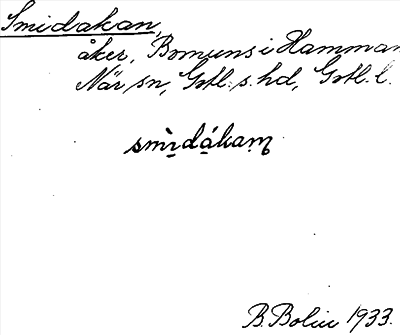 Smidakan,
åker, Bomuns i Hamman
När sn, Gotl. s. hd, Gotl. l.
smìdákaṃ
B. Bolin 1933.